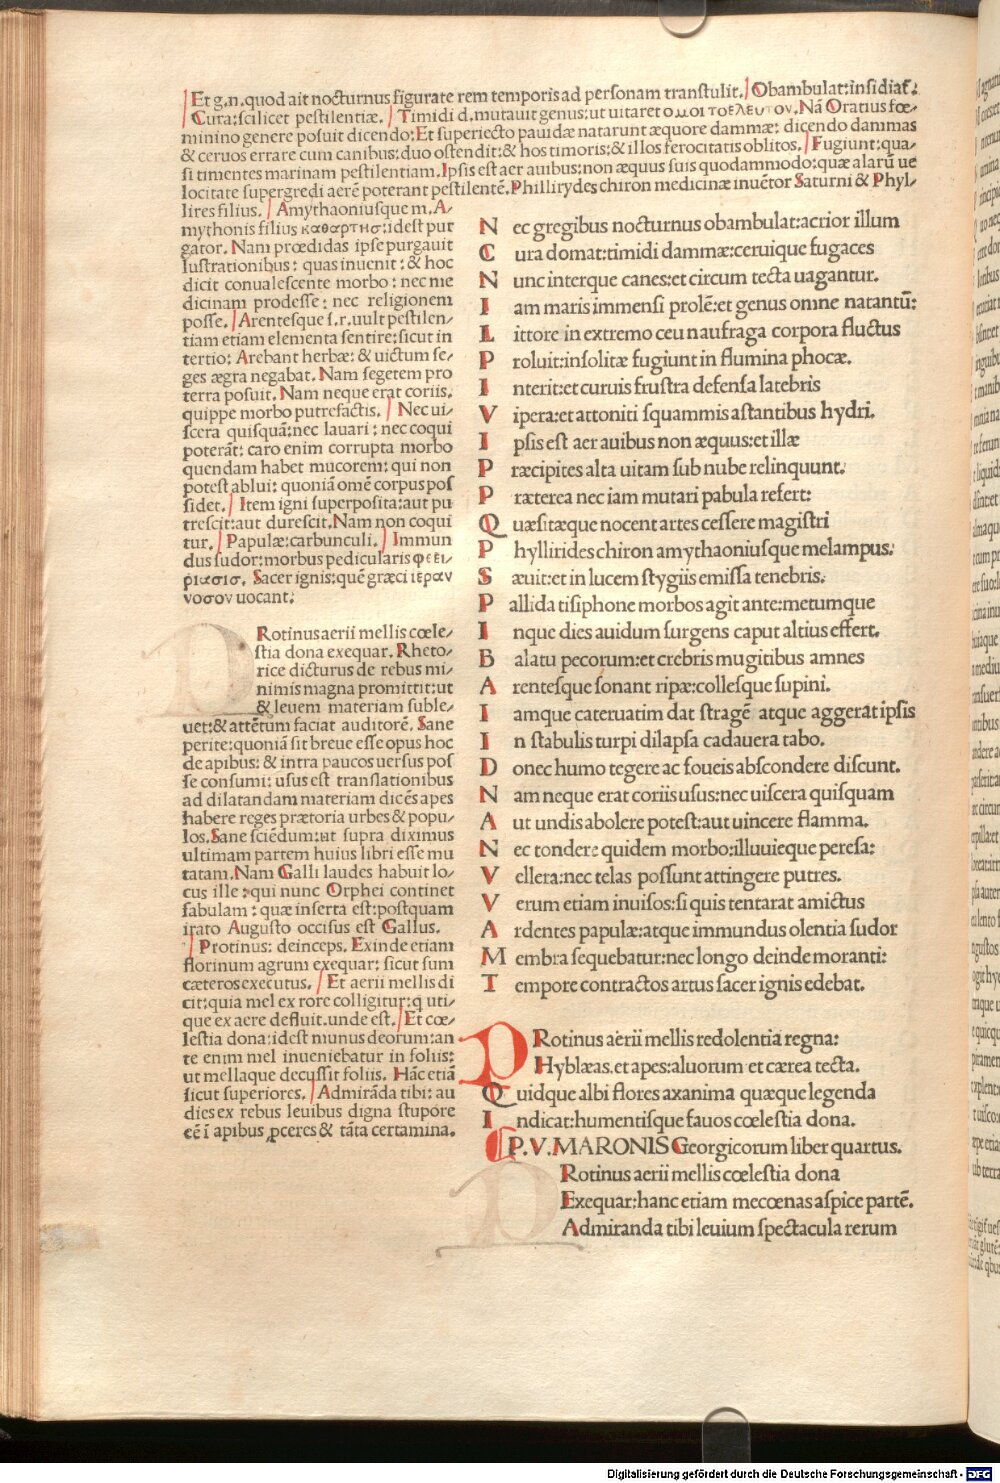 Et g.n. quod ait nocturnus figurate rem temporis ad personam transtulit. Obambulat: insidiať:
Cura: scilicet pestilentiæ. Timidi d. mutauit genus: ut uitaret ομοι τοελευτον. Nā Oratius fœ⸗
minino genere posuit dicendo: Et superiecto pauidæ natarunt æquore dammæ: dicendo dammas
& ceruos errare cum canibus: duo ostendit: & hos timoris: & illos ferocitatis oblitos. Fugiunt: qua⸗
si timentes marinam pestilentiam. Ipsis est aer auibus: non æquus suis quodammodo: quæ alarū ue
locitate supergredi aerē poterant pestilentē. Phillirydes chiron medicinæ inuētor Saturni & Phyl⸗
lires filius. Amythaoniusque m. A⸗
mythonis filius καθαρτησ: idest pur
gator. Nam prœdidas ipse purgauit
lustrationibus: quas inuenit: & hoc
dicit conualescente morbo: nec me
dicinam prodesse: nec religionem
posse. Arentesque s.r. uult pestilen⸗
tiam etiam elementa sentire: sicut in
tertio: Arebant herbæ: & uictum se⸗
ges ægra negabat. Nam segetem pro
terra posuit. Nam neque erat coriis.
quippe morbo putrefactis. Nec ui⸗
scera quisquā: nec lauari: nec coqui
poterāt: caro enim corrupta morbo
quendam habet mucorem: qui non
potest ablui: quoniā omē corpus pos
sidet. Item igni superposita: aut pu
trescit: aut durescit. Nam non coqui
tur. Papulæ: carbunculi. Immun
dus sudor: morbus pedicularis φεει⸗
ριασισ. Sacer ignis: quē græci ιεραν
νοσον uocant.
PRotinus aerii mellis cœle⸗
stia dona exequar. Rheto⸗
rice dicturus de rebus mi⸗
nimis magna promittit: ut
& leuem materiam suble⸗
uet: & attētum faciat auditorē. Sane
perite: quoniā sit breue esse opus hoc
de apibus: & intra paucos uersus pos
se consumi: usus est translationibus
ad dilatandam materiam dicēs apes
habere reges prætoria urbes & popu⸗
los. Sane sciēdum: ut supra diximus
ultimam partem huius libri esse mu
tatam. Nam Galli laudes habuit lo⸗
cus ille: qui nunc Orphei continet
fabulam: quæ inserta est: postquam
irato Augusto occisus est Gallus.
Protinus: deinceps. Exinde etiam
florinum agrum exequar: sicut sum
cæteros executus. Et aerii mellis di
cit: quia mel ex rore colligitur: q uti⸗
que ex aere defluit. unde est. Et cœ⸗
lestia dona: idest munus deorum: an
te enim mel inueniebatur in foliis:
ut mellaque decussit foliis. Hāc etiā
sicut superiores. Admirāda tibi: au
dies ex rebus leuibus digna stupore
eē i apibus ꝓceres & tāta certamina.
Nec gregibus nocturnus obambulat: acrior illum
Cura domat: timidi dammæ: ceruique fugaces
Nunc interque canes: et circum tecta uagantur.
Iam maris immensi prolē: et genus omne natantū:
Littore in extremo ceu naufraga corpora fluctus
Proluit: insolitæ fugiunt in flumina phocæ.
Interit: et curuis frustra defensa latebris
Vipera: et attoniti squammis astantibus hydri.
Ipsis est aer auibus non æquus: et illæ
Præcipites alta uitam sub nube relinquunt.
Præterea nec iam mutari pabula refert:
Quæsitæque nocent artes cessere magistri
Phyllirides chiron amythaoniusque melampus.
Sæuit: et in lucem stygiis emissa tenebris.
Pallida tisiphone morbos agit ante: metumque
Inque dies auidum surgens caput altius effert.
Balatu pecorum: et crebris mugitibus amnes
Arentesque sonant ripæ: collesque supini.
Iamque cateruatim dat stragē atque aggerat ipsis
In stabulis turpi dilapsa cadauera tabo.
Donec humo tegere ac foueis abscondere discunt.
Nam neque erat coriis usus: nec uiscera quisquam
Aut undis abolere potest: aut uincere flamma.
Nec tondere quidem morbo: illuuieque peresa:
Vellera: nec telas possunt attingere putres.
Verum etiam inuisos: si quis tentarat amictus
Ardentes papulæ: atque immundus olentia sudor
Membra sequebatur: nec longo deinde moranti:
Tempore contractos artus sacer ignis edebat.
PRotinus aerii mellis redolentia regna:
Hyblæas. et apes: aluorum et cærea tecta.
Quidque albi flores axanima quæque legenda
Indicat: humentisque fauos cœlestia dona.
P.V. MARONIS Georgicorum liber quartus.
PRotinus aerii mellis cœlestia dona
Exequar: hanc etiam mecœnas aspice partē.
Admiranda tibi leuium spectacula rerum
Digitalisierung gefördert durch die Deutsche Forschungsgemeinschaft - DFG